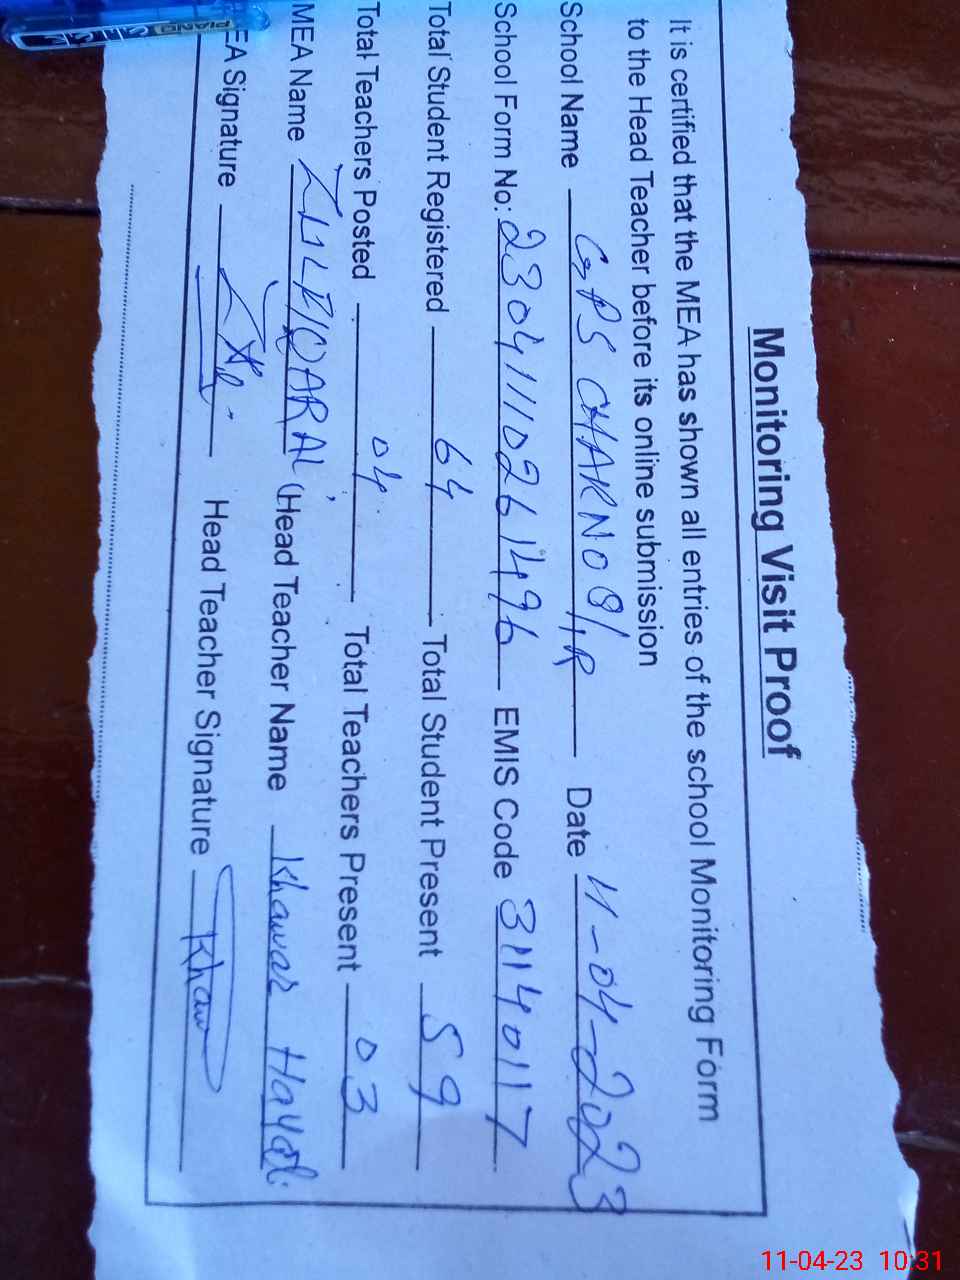 Monitoring Visit Proof
It is certified that the MEA has shown all entries of the school Monitoring Form
to the Head Teacher before its online submission
School Name GPS CHAK NO 8/1R Date 11-04-2023
School Form No: 23041110261496 EMIS Code 31140117
Total Student Registered 64 Total Student Present 59
Total Teachers Posted 04 Total Teachers Present 03
MEA Name ALI Head Teacher Name Khawar Hayat
EA Signature Head Teacher Signature Khaw
PIANO
11-04-23 10:31